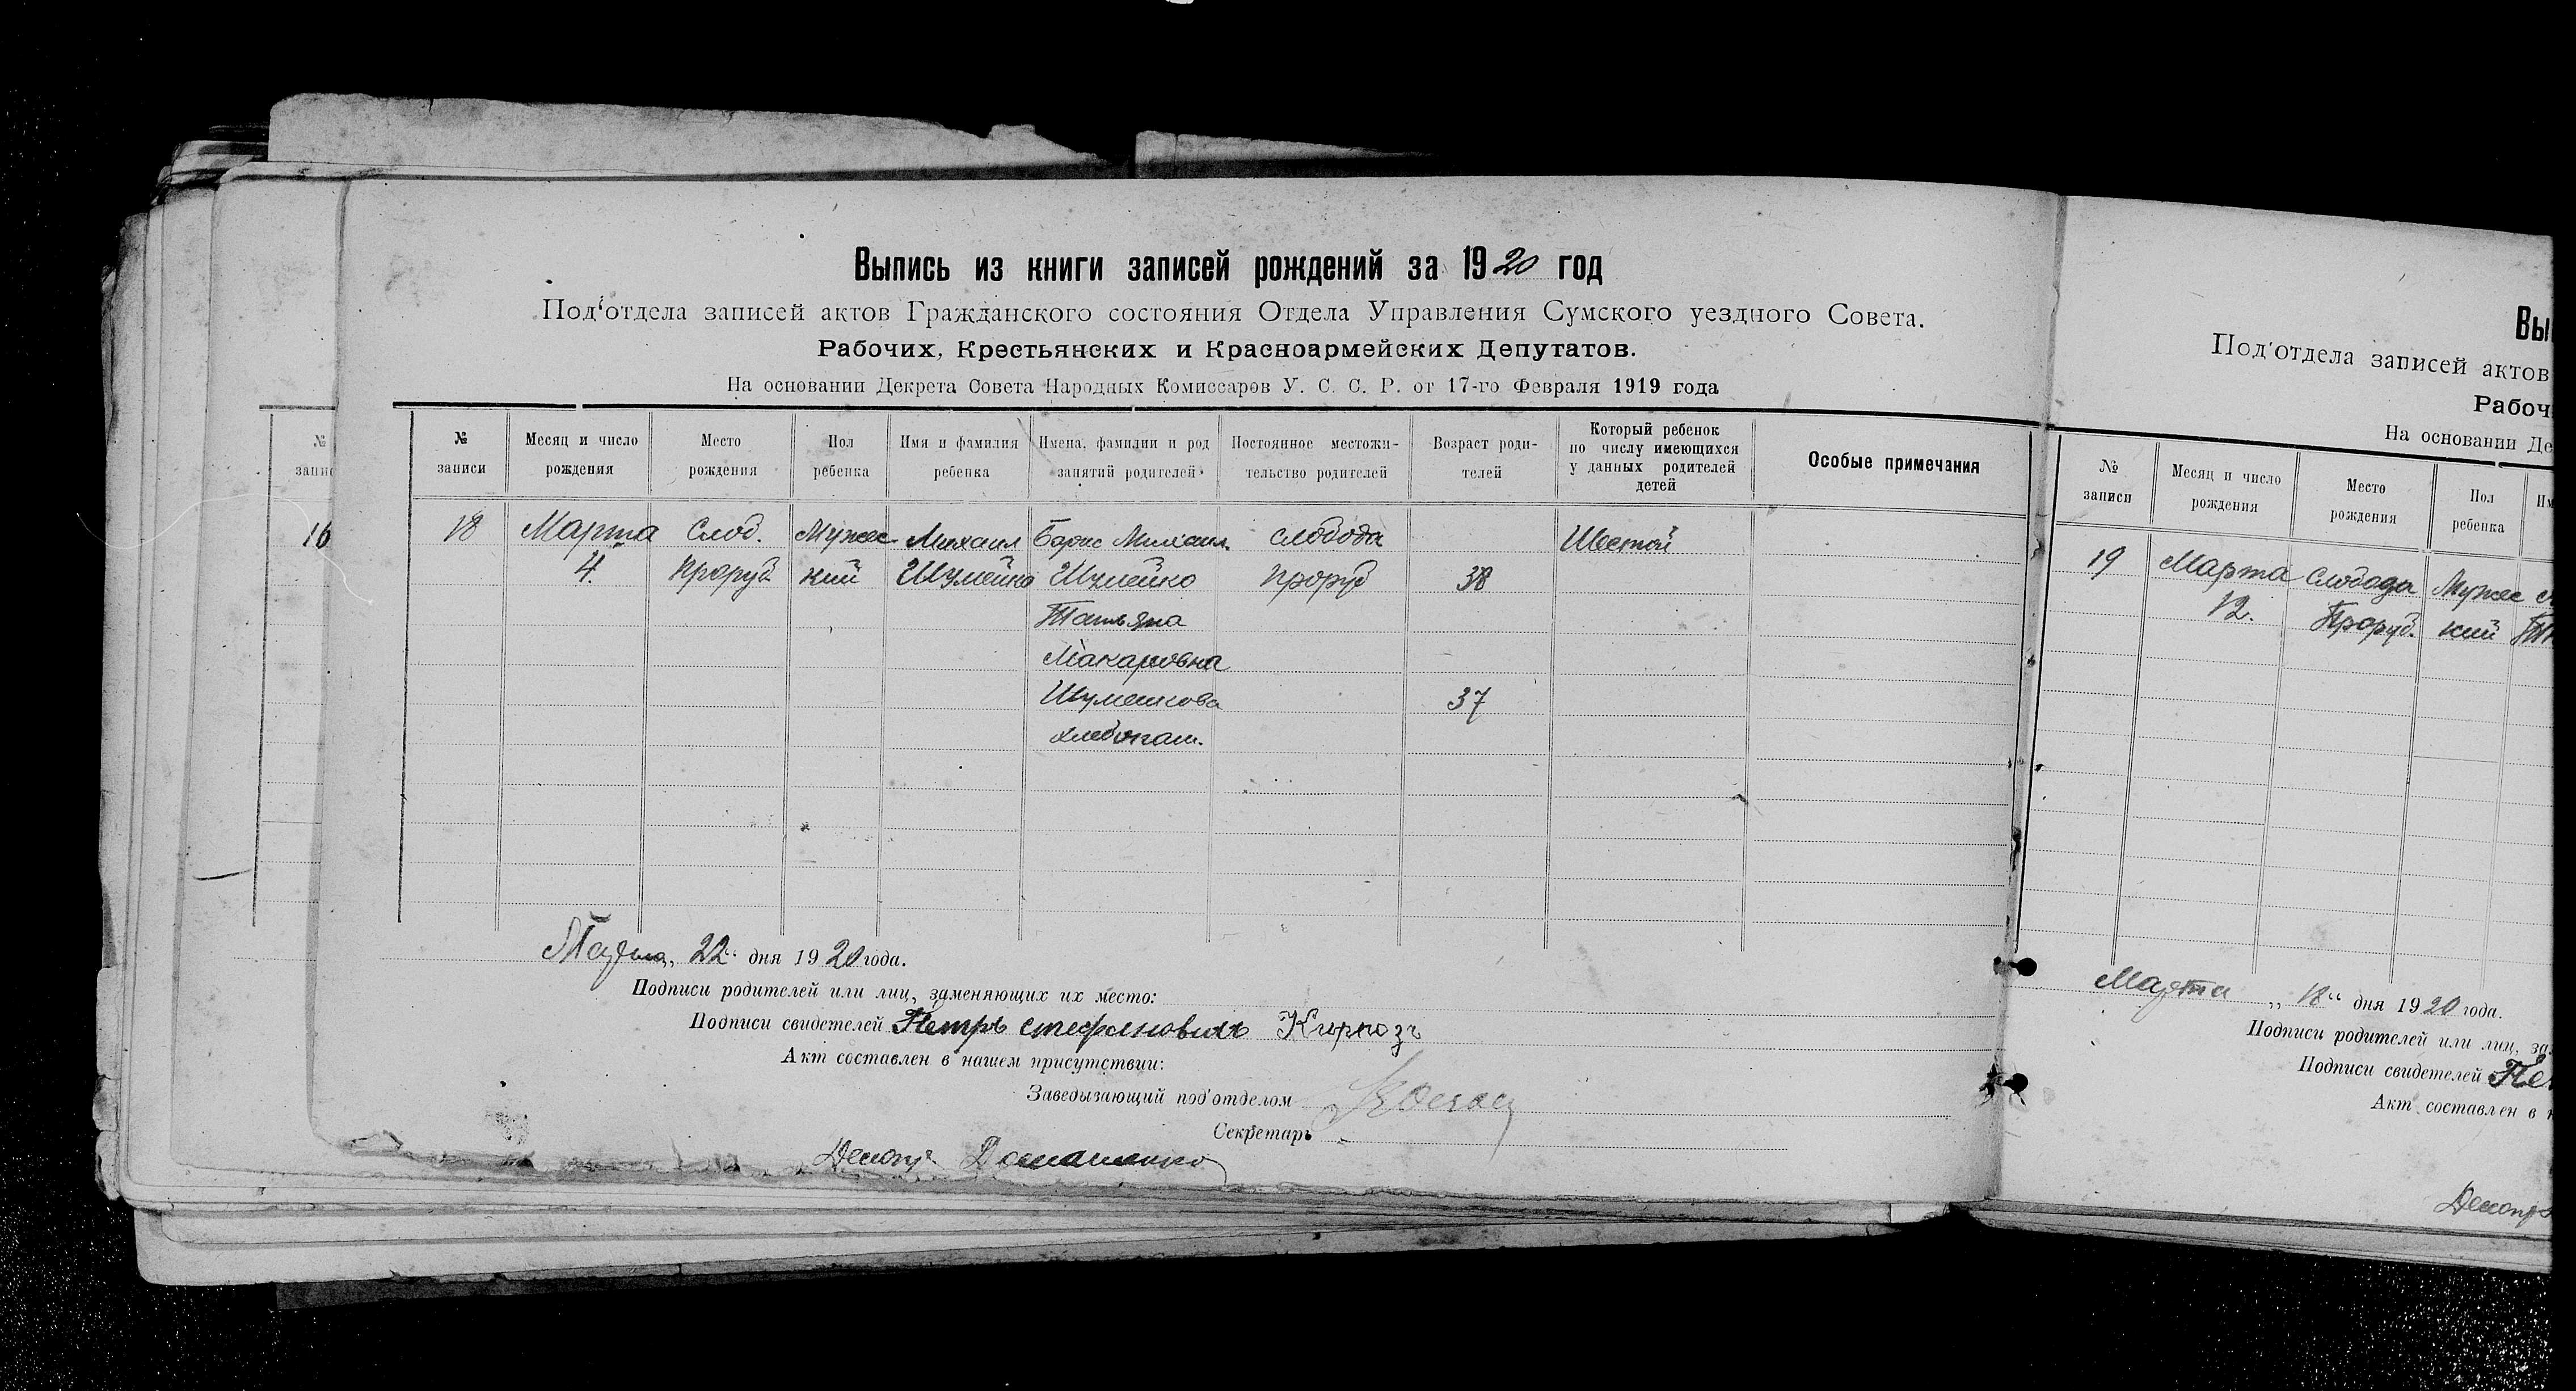 Выпись из книги записей рождений за 1920 год
Под'отдела записей актов Гражданского состояния Отдела Управления Сумского уездного Совета.
Рабочих, Крестьянских и Красноармейских Депутатов.
На основании Декрета Совета Народных Комиссаров У. С. С. Р. от 17-го Февраля 1919 года
№ записи
Месяц и число рождения
Место рождения
Пол ребенка
Имя и фамилия ребенка
Имена, фамилии и род занятий родителей
Постоянное местожи-
тельство родителей
Возраст роди-
телей
Который ребенок
по числу имеющихся
у данных родителей
детей
Особые примечания
18 Марта Слод. Мужес Михаил Борис Михаил. слобода Шестой
4. Проруб кий Шумейко Шумейко проруб 38
Татьяна
Макаровна
Шумейкова 37
хлебопаш.
Марта, 22" дня 1920 года.
Подписи родителей или лиц, заменяющих их место:
Подписи свидетелей Петръ Стефановичъ
Акт составлен в нашем присутствии:
Заведывающий под'отделом
Секретарь
16
Вы
Под'отдела записей актов
Рабоч
На основании Де
№ записи
Месяц и число рождения
Место рождения
Пол ребенка
19 Марта Слобода Мужес
12. Проруб. кий
Марта „18" дня 1920 года.
Подписи родителей или лиц, за
Подписи свидетелей
Акт составлен в